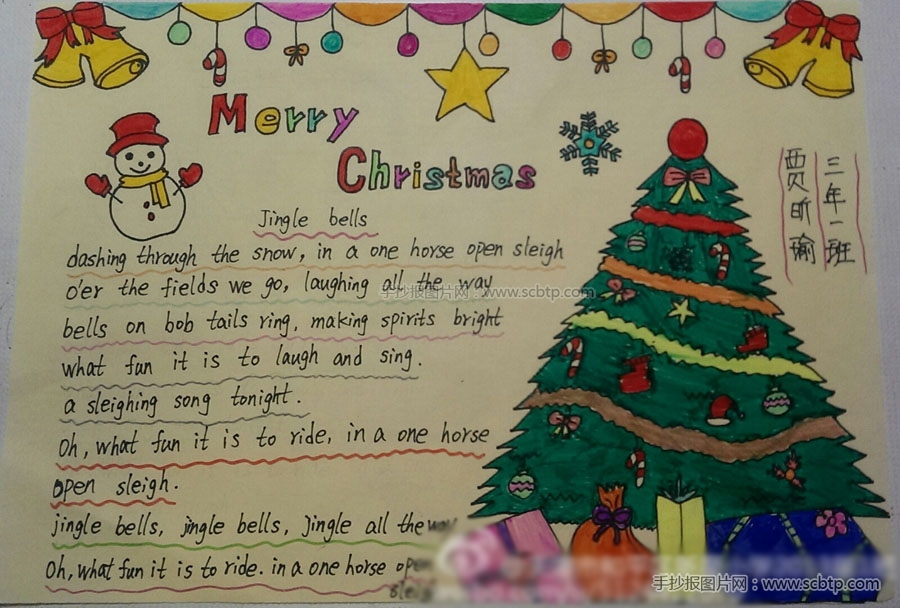 Merry
Christmas
三年一班
贾昕瑜
Jingle bells
dashing through the snow, in a one horse open sleigh
o'er the fields we go, laughing all the way
手抄报图片网：www.scbtp.com
bells on bob tails ring, making spirits bright
what fun it is to laugh and sing.
a sleighing song tonight.
Oh, what fun it is to ride, in a one horse
open sleigh.
jingle bells, jingle bells, Jingle all the way
Oh, what fun it is to ride. in a one horse open
手抄报图片网：www.scbtp.com